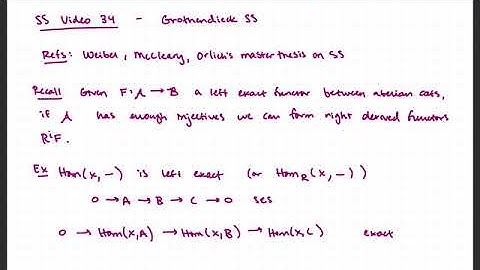 SS Video 34 - Grothendieck SS
Refs: Weibel, McCleary, Orlich's master thesis on SS
Recall Given F: A → B a left exact functor between abelian cats,
if A has enough injectives we can form right derived functors
RⁱF.
Ex Hom(X, -) is left exact (or Hom_R(X, -))
0 → A → B → C → 0 ses
0 → Hom(X,A) → Hom(X,B) → Hom(X,C) exact